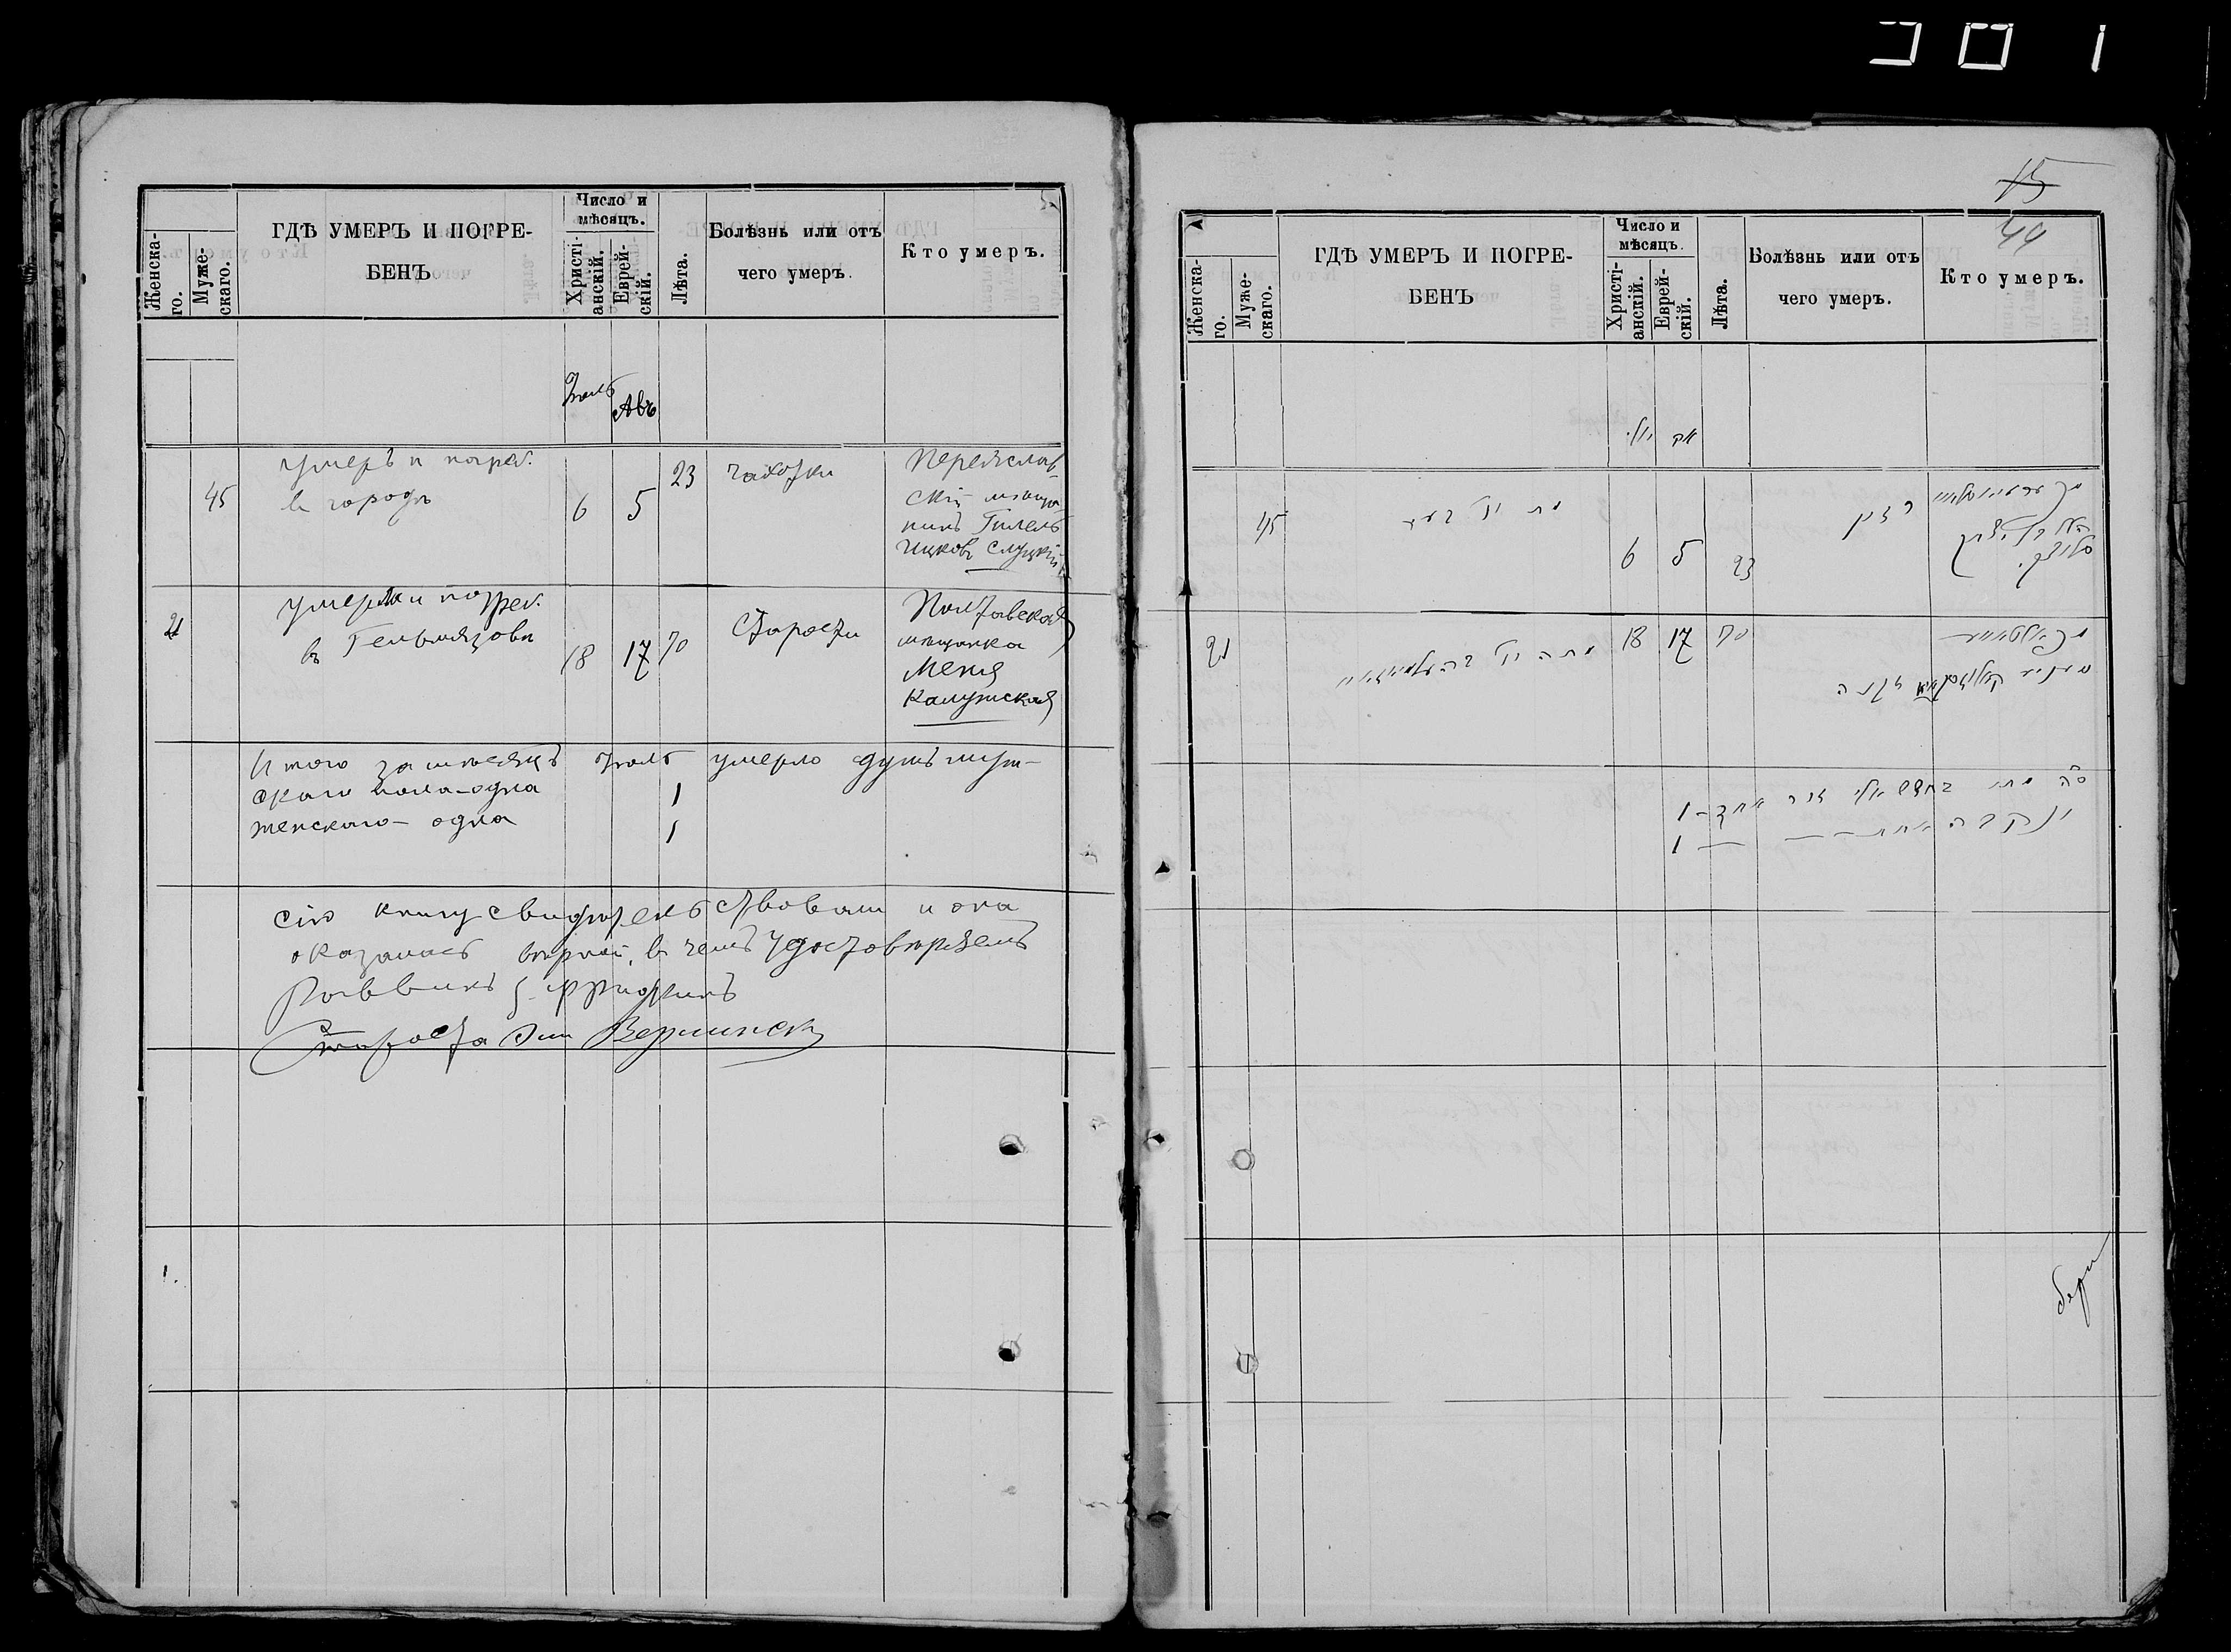 Женска-
го.
Муже-
скаго.
ГДѢ УМЕРЪ И ПОГРЕ-
БЕНЪ
Число и
мѣсяцъ.
Христі-
анскій.
Еврей-
скій.
Лѣта.
Болѣзнь или отъ
чего умеръ.
Кто умеръ.
Іюль
Авъ
45
умеръ и погреб.
въ городѣ
6
5
23
чахотки
Переяслав
скій мѣща
нинъ Гилель
Ицковъ Слуцкій
21
умерла и погреб.
въ Гельмязовѣ
18
17
70
Старости
Полтавская
мѣщанка
Меня
Калужская
Итого за мѣсяцъ Іюль умерло душъ муж-
скаго пола - одна 1
женскаго - одна 1
сію книгу свидѣтельствовали и она
оказалась вѣрной, въ чемъ удостовѣряемъ
Раввинъ
Староста
15
44
Женска-
го.
Муже-
скаго.
ГДѢ УМЕРЪ И ПОГРЕ-
БЕНЪ
Число и
мѣсяцъ.
Христі-
анскій.
Еврей-
скій.
Лѣта.
Болѣзнь или отъ
чего умеръ.
Кто умеръ.
יולי
אב
45
6
5
23
סלוצקי
21
18
17
70
זקנה
סה מתו בחדש יולי זכר אחד - 1
ונקבה אחת - 1